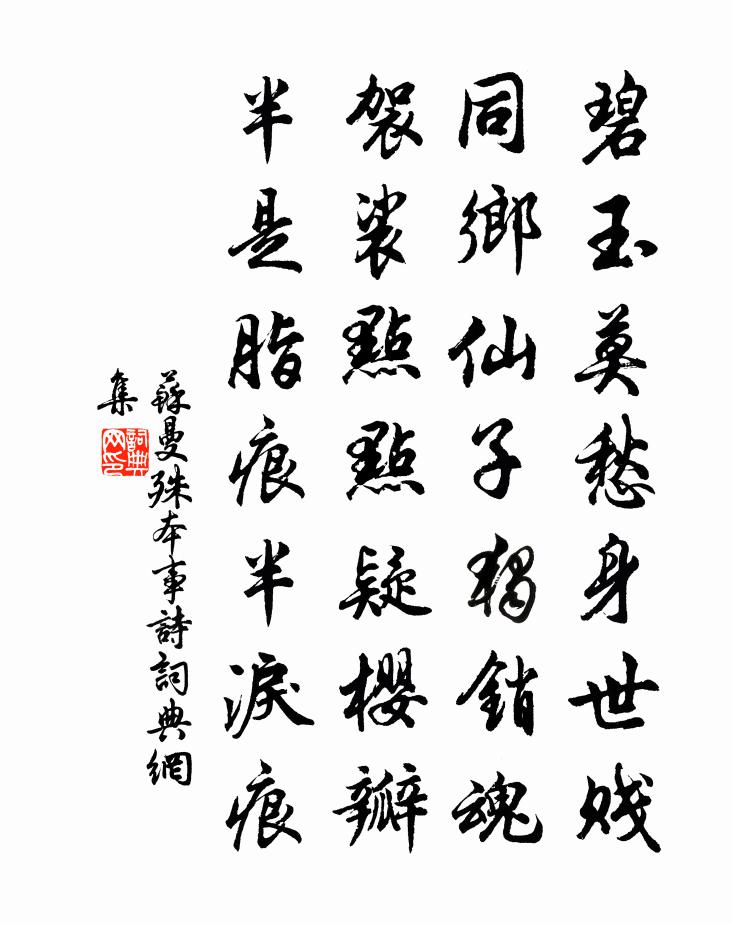 碧玉莫愁身世贱
同鄉仙子獨銷魂
袈裟點點疑櫻瓣
半是脂痕半淚痕
蘇曼殊本事詩詞典網
集
詞典网印